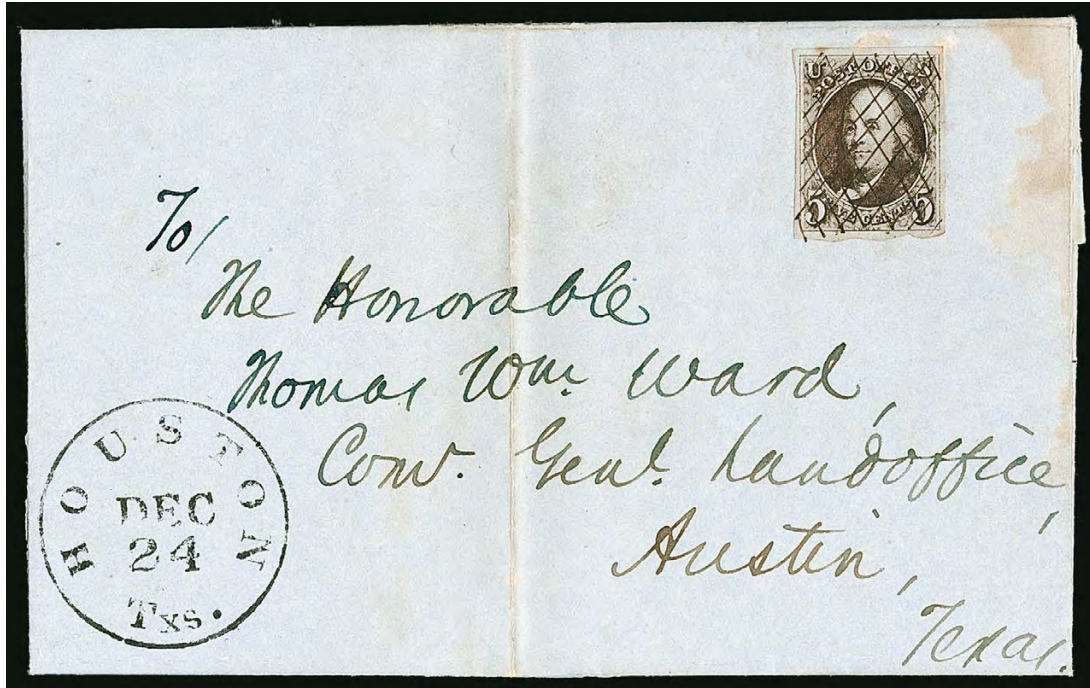 U S
POST OFFICE
5 FIVE CENTS 5
To/
The Honorable
Thomas Wm. Ward,
Com<sup>r</sup>. Genl. Landoffice,
Austin,
Texas.
HOUSTON
DEC
24
Txs.